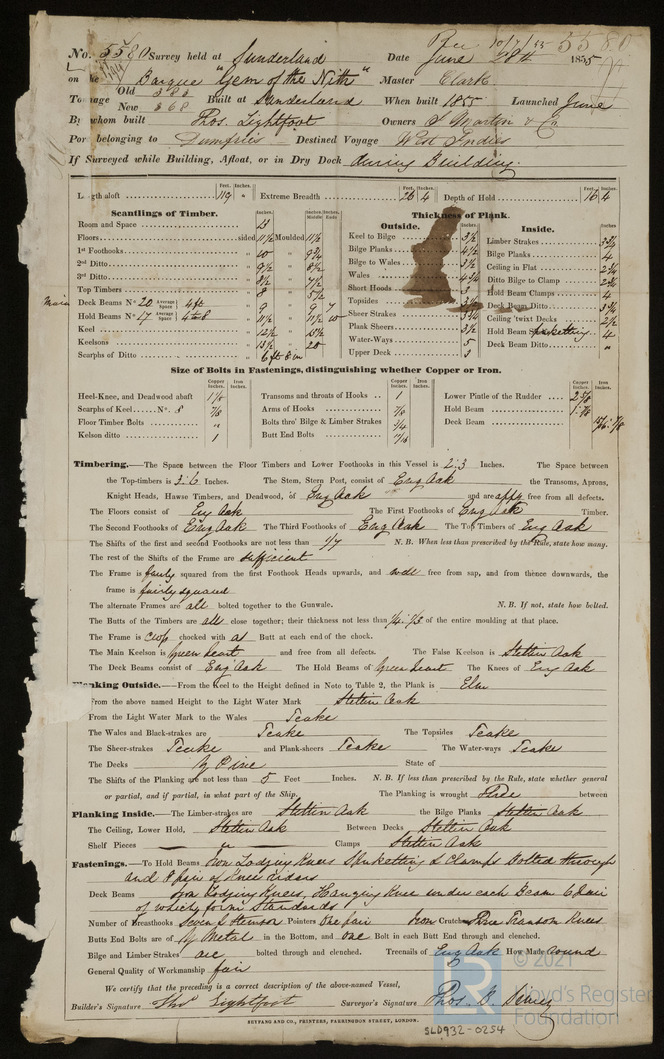 Rec 10/7/55 5580
No. 5580 Survey held at Sunderland Date June 28th 1855
on the Barque "Gem of the Nith" Master Clark
Tonnage Old 383 New 368 Built at Sunderland When built 1855 Launched June
By whom built Thos. Lightfoot Owners Martin & Co
Port belonging to Dumfries Destined Voyage West Indies
If Surveyed while Building, Afloat, or in Dry Dock during Building.
Feet. Inches. Feet. Inches. Feet. Inches.
Length aloft 119 " Extreme Breadth 26 4 Depth of Hold 16 4
Scantlings of Timber.
Room and Space
Floors sided 11½ Moulded 11½
1st Foothooks 10 " 9¾
2nd Ditto 9½ " 8½
3rd Ditto 8½ " 7½
Top Timbers 8 "
Main Deck Beams No 20 Average Space 4ft 9 " 9 7
Hold Beams No 17 Average Space 4ft 8 11½ " 11½ 10
Keel 12½ "
Keelsons 13½ "
Scarphs of Ditto 6 ft 6 in
Thickness of Plank.
Outside.
Keel to Bilge 3½
Bilge Planks 4½
Bilge to Wales 3½
Wales 4¾
Short Hoods 3
Topsides
Sheer Strakes
Plank Sheers 3½
Water-Ways 5
Upper Deck 3
Inside.
Limber Strakes
Bilge Planks 4
Ceiling in Flat
Ditto Bilge to Clamp
Hold Beam Clamps 4
Deck Beam Ditto
Ceiling 'twixt Decks 2½
Hold Beam Spirketting 4
Deck Beam Ditto "
Size of Bolts in Fastenings, distinguishing whether Copper or Iron.
Copper Inches. Iron Inches. Copper Inches. Iron Inches. Copper Inches. Iron Inches.
Heel-Knee, and Deadwood abaft 1⅛
Scarphs of Keel No. 8 ⅞
Floor Timber Bolts "
Kelson ditto 1
Transoms and throats of Hooks 1
Arms of Hooks ⅞
Bolts thro' Bilge & Limber Strakes ¾
Butt End Bolts
Lower Pintle of the Rudder 2⅝
Hold Beam
Deck Beam
Timbering.—The Space between the Floor Timbers and Lower Foothooks in this Vessel is 2.3 Inches. The Space between
the Top-timbers is 3.6 Inches. The Stem, Stern Post, consist of Eng Oak the Transoms, Aprons,
Knight Heads, Hawse Timbers, and Deadwood, of Eng Oak and are appy free from all defects.
The Floors consist of Eng Oak The First Foothooks of Eng Oak Timber.
The Second Foothooks of Eng Oak The Third Foothooks of Eng Oak The Top Timbers of Eng Oak
The Shifts of the first and second Foothooks are not less than 1/7 N. B. When less than prescribed by the Rule, state how many.
The rest of the Shifts of the Frame are sufficient
The Frame is fairly squared from the first Foothook Heads upwards, and well free from sap, and from thence downwards, the
frame is fairly squared
The alternate Frames are all bolted together to the Gunwale. N. B. If not, state how bolted.
The Butts of the Timbers are all close together; their thickness not less than ¼.⅓ of the entire moulding at that place.
The Frame is chocked with at Butt at each end of the chock.
The Main Keelson is Green heart and free from all defects. The False Keelson is Stettin Oak
The Deck Beams consist of Eng Oak The Hold Beams of Green heart The Knees of Eng Oak
Planking Outside.—From the Keel to the Height defined in Note to Table 2, the Plank is Elm
From the above named Height to the Light Water Mark Stettin Oak
From the Light Water Mark to the Wales Teake
The Wales and Black-strakes are Teake The Topsides Teake
The Sheer-strakes Teake and Plank-sheers Teake The Water-ways Teake
The Decks Y Pine State of
The Shifts of the Planking are not less than 5 Feet Inches. N. B. If less than prescribed by the Rule, state whether general
or partial, and if partial, in what part of the Ship. The Planking is wrought Three between
Planking Inside.—The Limber-strakes are Stettin Oak the Bilge Planks Stettin Oak
The Ceiling, Lower Hold, Stettin Oak Between Decks Stettin Oak
Shelf Pieces Clamps Stettin Oak
Fastenings.—To Hold Beams Iron Lodging Knees Spirketting & Clamps bolted through
and 8 pair of Knee riders
Deck Beams Iron Lodging Knees, Hanging Knee under each Beam 6 pair
of which form Standards
Number of Breasthooks Seven & Stemson Pointers One pair Iron Crutches Three Transom Knees
Butts End Bolts are of Y Metal in the Bottom, and one Bolt in each Butt End through and clenched.
Bilge and Limber Strakes are bolted through and clenched. Treenails of Eng Oak How Made round
General Quality of Workmanship fair
We certify that the preceding is a correct description of the above-named Vessel,
Builder's Signature Thos Lightfoot Surveyor's Signature
SEYFANG AND CO., PRINTERS, FARRINGDON STREET, LONDON.
SLD932-0254
© 2021
Lloyd's Register
Foundation